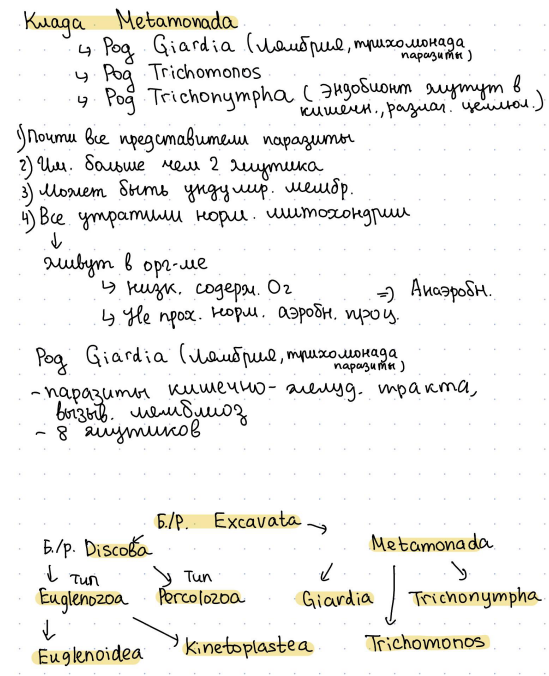 Клада Metamonada
↳ Род Giardia (Лямблия, трихомонада
паразиты)
↳ Род Trichomonos
↳ Род Trichonympha (Эндобионт жгутут в
кишечн., разлаг. целлюл.)
1) Почти все представители паразиты
2) Им. больше чем 2 жгутика
3) Может быть ундулир. мембр.
4) Все утратили норм. митохондрии
↓
живут в орг-ме
↳ низк. содерж. O2 => Анаэробн.
↳ Не прох. норм. аэробн. проц.
Род Giardia (Лямблия, трихомонада
паразиты)
- паразиты кишечно-желуд. тракта,
вызыв. лямблиоз
- 8 жгутиков
Б./Р. Excavata
Б./р. Discoba Metamonada
Тип Тип
Euglenozoa Percolozoa Giardia Trichonympha
Euglenoidea Kinetoplastea Trichomonos